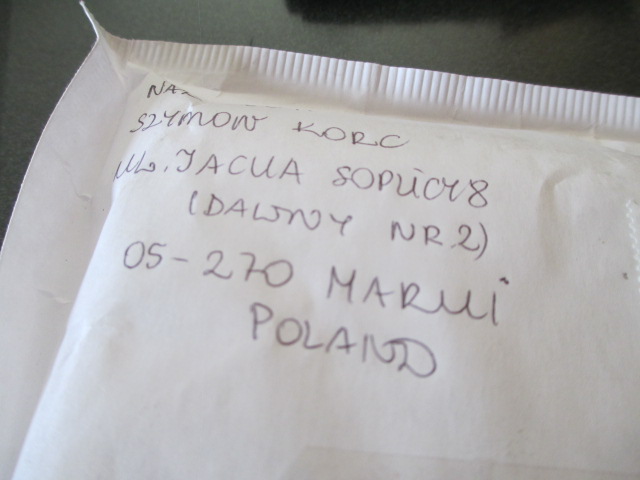 SZYMON KORC
UL. JACKA SOPLICY 8
(DAWNY NR 2)
05-270 MARKI
POLAND